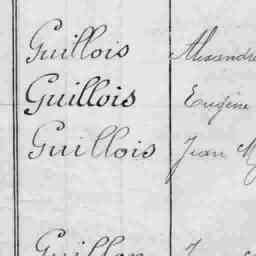 Guillois Alexandre
Guillois Eugène
Guillois Jean